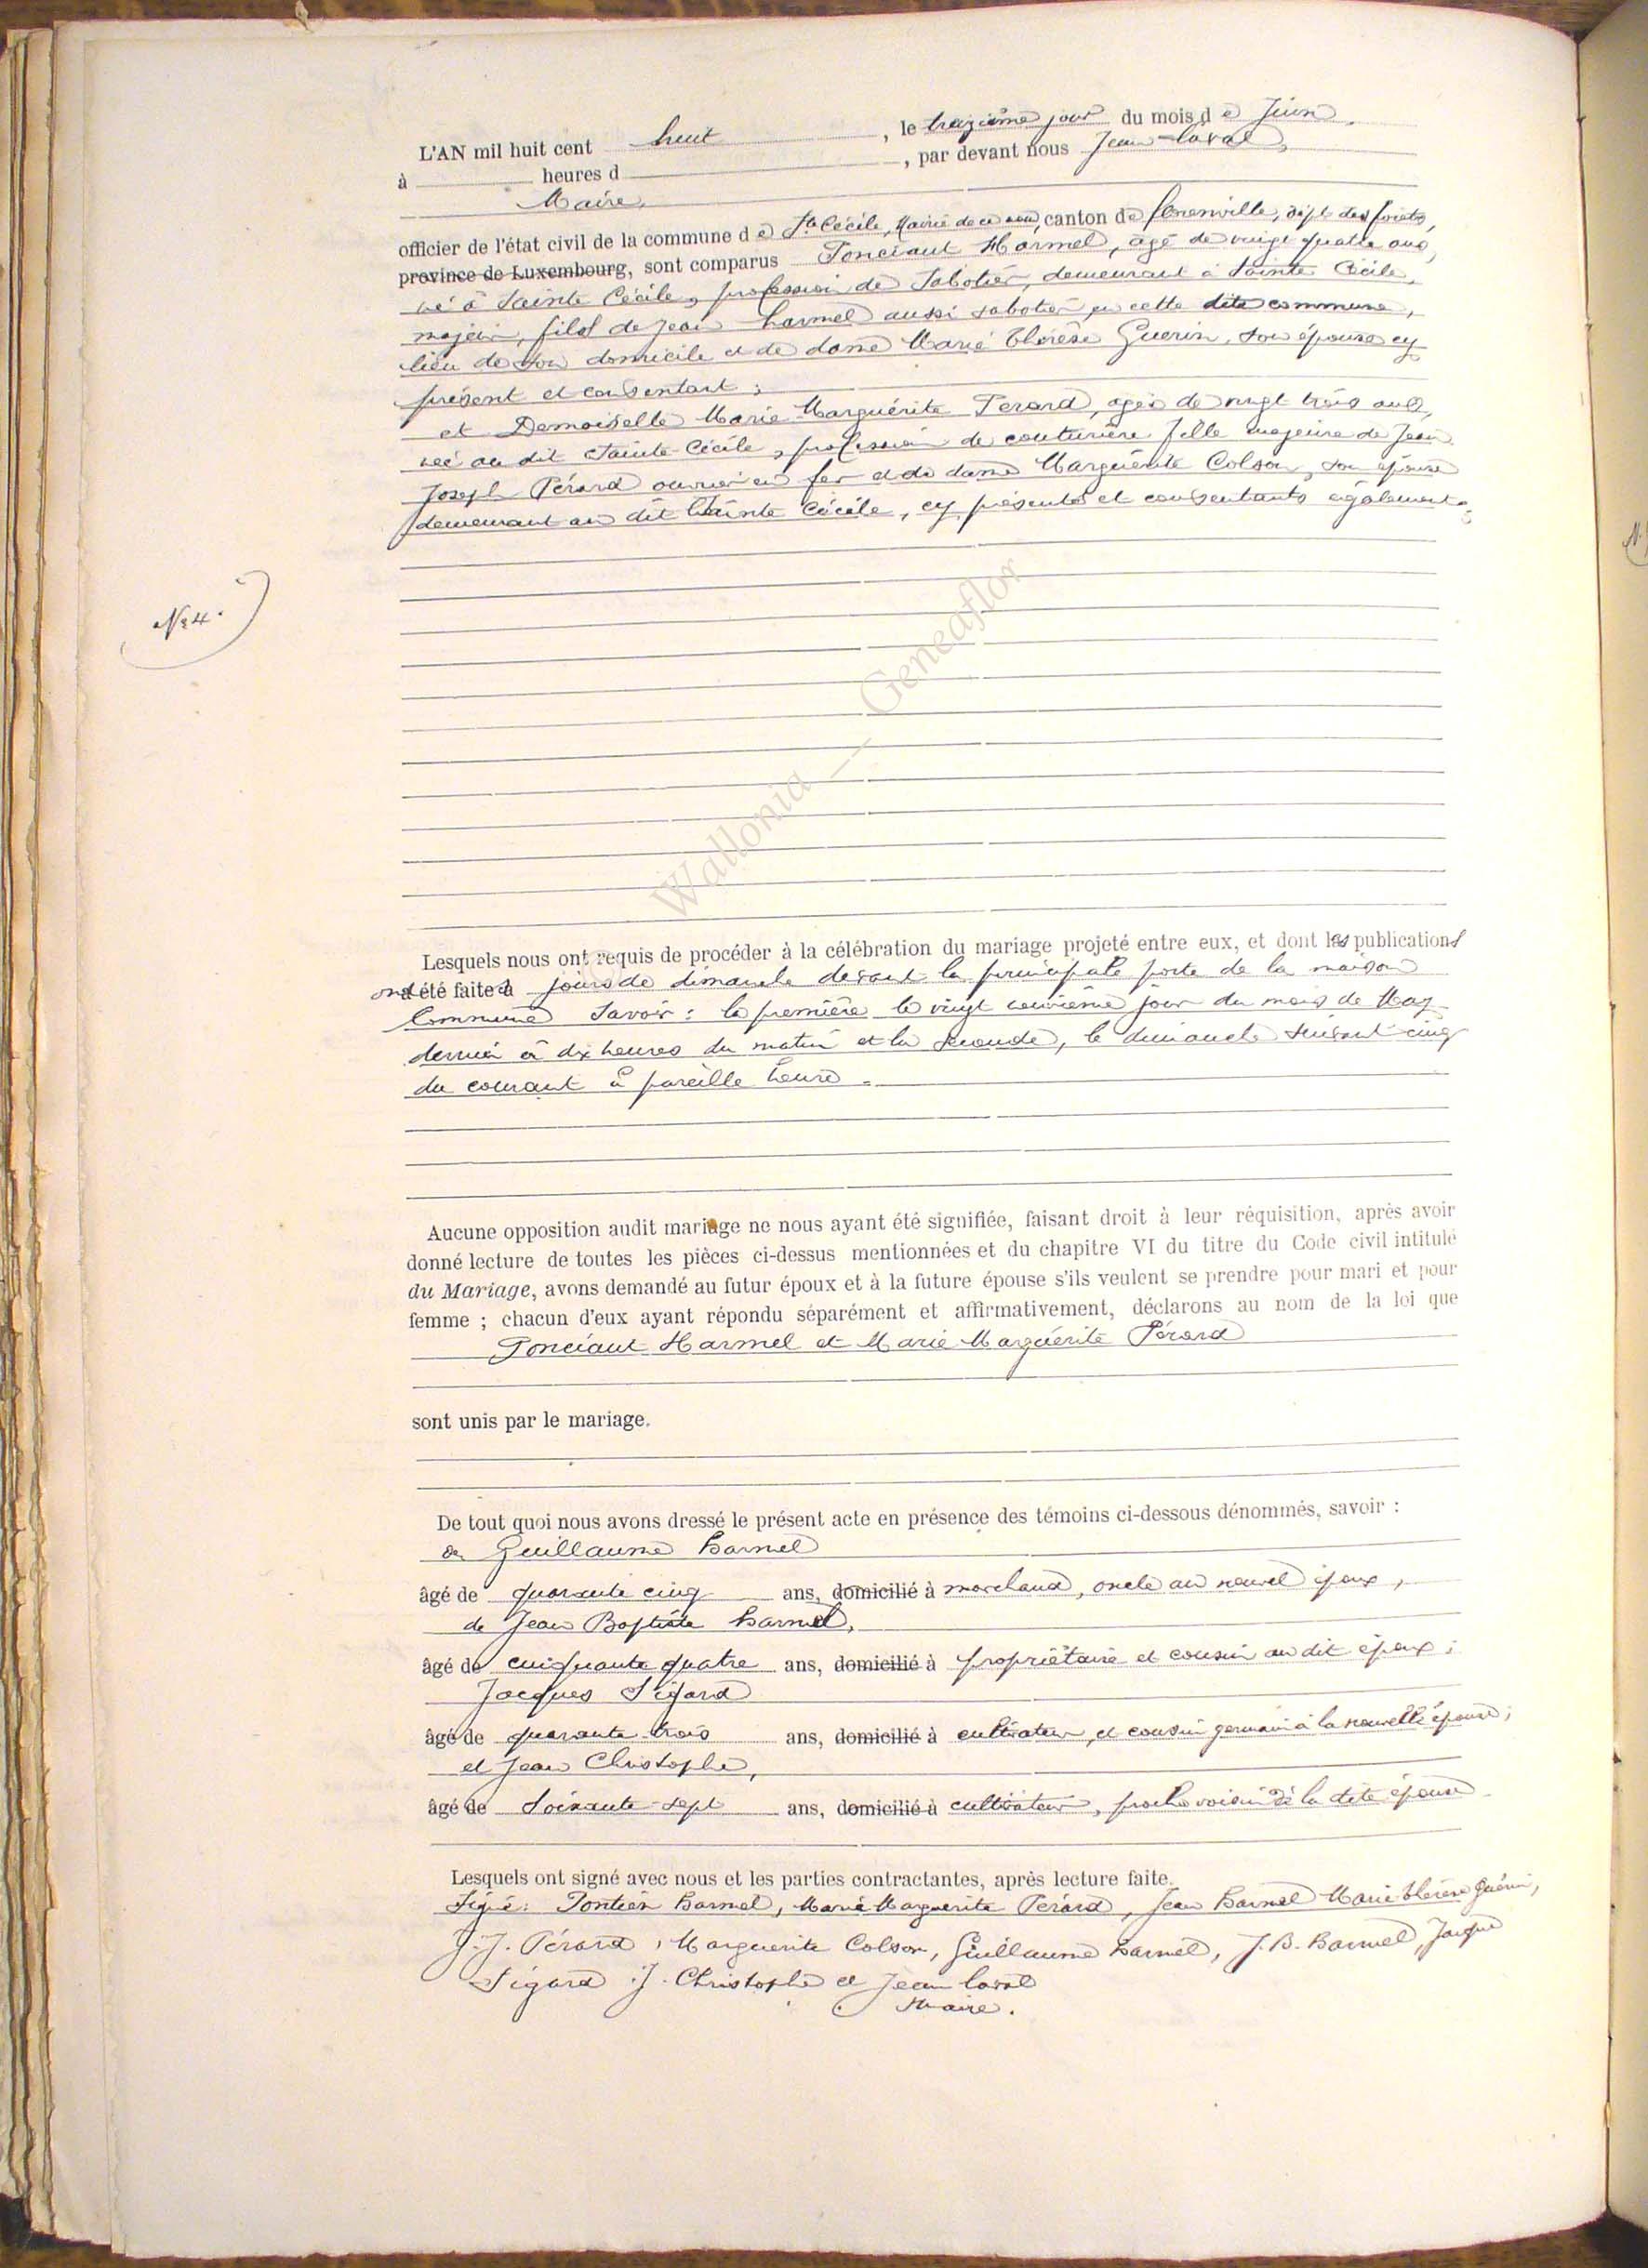 L'AN mil huit cent huit, le treizième jour du mois de Juin,
à heures d , par devant nous Jean Laval,
Maire,
officier de l'état civil de la commune de Ste Cécile, Mairie de ce nom, canton de florenville, dépt des forêts,
province de Luxembourg, sont comparus Ponciaut Harmel, agé de vingt quatre ans,
né à Sainte Cécile, profession de Sabotier, demeurant à Sainte Cécile,
majeur, fils de Jean harmel aussi sabotier en cette dite commune,
lieu de son domicile et de dame Marie Thérèse Guerin, son épouse cy
présent et consentant ;
et Demoiselle Marie Marguérite Perard, agée de vingt trois ans,
née au dit Sainte-Cécile, profession de couturière fille majeure de Jean
Joseph Pérard ouvrier en fer et de dame Marguérite Colson, son épouse
demeurant au dit Sainte Cécile, cy présents et consentants également.
N° 4.
© Wallonia — Geneaflor
Lesquels nous ont requis de procéder à la célébration du mariage projeté entre eux, et dont les publications
ont été faites à jours de dimanche devant la principale porte de la maison
Commune Savoir : la première le vingt neuvième jour du mois de May
dernier à dix heures du matin et la seconde, le dimanche suivant cinq
du courant à pareille heure.
Aucune opposition audit mariage ne nous ayant été signifiée, faisant droit à leur réquisition, après avoir
donné lecture de toutes les pièces ci-dessus mentionnées et du chapitre VI du titre du Code civil intitulé
du Mariage, avons demandé au futur époux et à la future épouse s'ils veulent se prendre pour mari et pour
femme ; chacun d'eux ayant répondu séparément et affirmativement, déclarons au nom de la loi que
Ponciaut Harmel et Marie Marguérite Pérard
sont unis par le mariage.
De tout quoi nous avons dressé le présent acte en présence des témoins ci-dessous dénommés, savoir :
de Guillaume harmel
âgé de quarante cinq ans, domicilié à marchand, oncle au nouvel époux,
de Jean Baptiste harmel,
âgé de cinquante quatre ans, domicilié à propriétaire et cousin au dit époux ;
Jacques Sigard
âgé de quarante trois ans, domicilié à cultivateur, et cousin germain à la nouvelle épouse ;
et Jean Christophe,
âgé de Soixante-sept ans, domicilié à cultivateur, proche voisin de la dite épouse
Lesquels ont signé avec nous et les parties contractantes, après lecture faite.
Signé : Pontien harmel, Marie Marguerite Pérard, Jean harmel Marie thérèse Guérin,
J. J. Pérard, Marguerite Colson, Guillaume harmel, J. B. harmel, Jacque
Sigard J. Christophe et Jean laval
Maire.